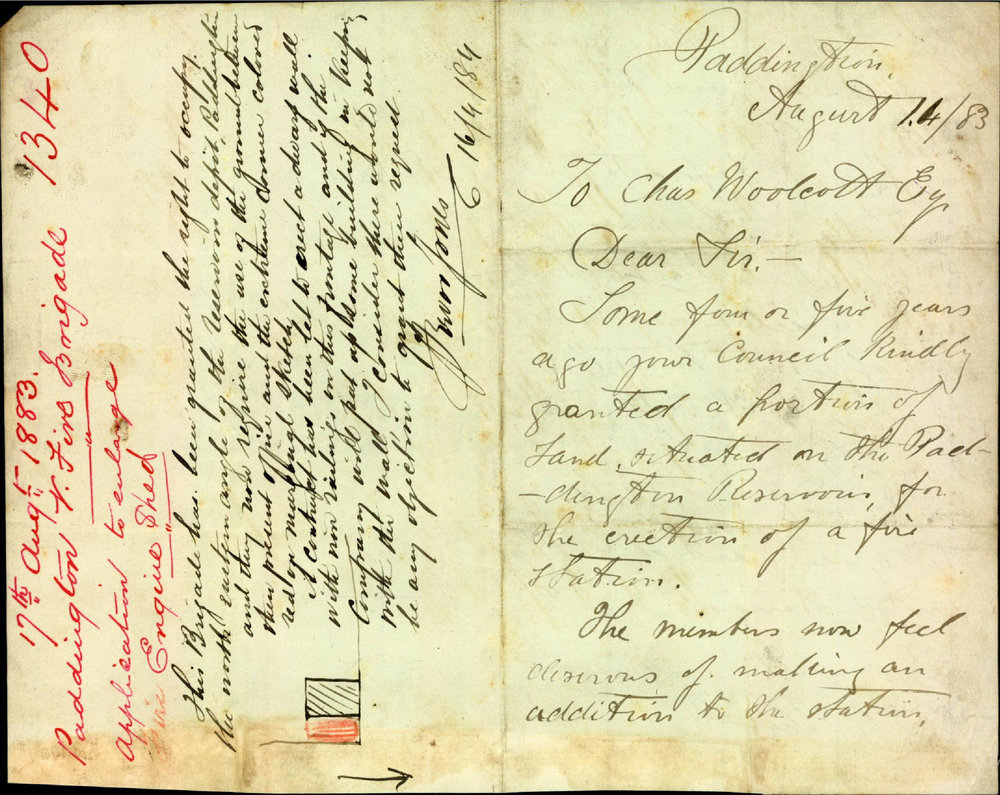 17th Augt 1883.
Paddington V. Fire Brigade 1340
Application to enlarge
Fire Engine Shed
This Brigade has been granted the right to occupy
the north eastern angle of the reservoir depôt Paddington
and they now require the use of the ground between
their present office and the extreme corner colored
red on marginal sketch
A contract has been let to erect a dwarf wall
with iron railings on this frontage and if the
Company will put up some building in keeping
with the wall I consider there would not
be any objection to grant their request
Jones 16/4/84
Paddington,
August 14/83
To Chas Woolcott Esq
Dear Sir,—
Some four or five years
ago your Council Kindly
granted a portion of
Land situated on the Pad-
-dington Reservoir, for
the erection of a fire
station.
The members now feel
desirous of making an
addition to the station,